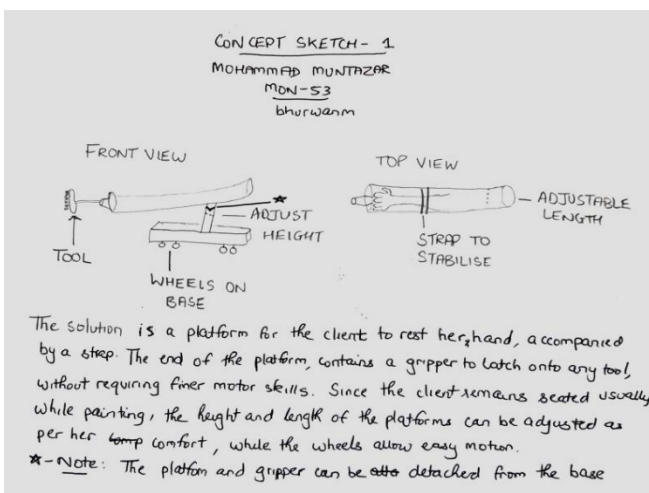 CONCEPT SKETCH - 1
MOHAMMAD MUNTAZAR
MON-53
bhurwanm
FRONT VIEW
TOOL
WHEELS ON
BASE
ADJUST
HEIGHT
TOP VIEW
STRAP TO
STABILISE
ADJUSTABLE
LENGTH
The solution is a platform for the client to rest her hand, accompanied
by a strap. The end of the platform, contains a gripper to latch onto any tool,
without requiring finer motor skills. Since the client remains seated usually
while painting, the height and length of the platforms can be adjusted as
per her comfort, while the wheels allow easy motion.
★-Note: The platfom and gripper can be detached from the base